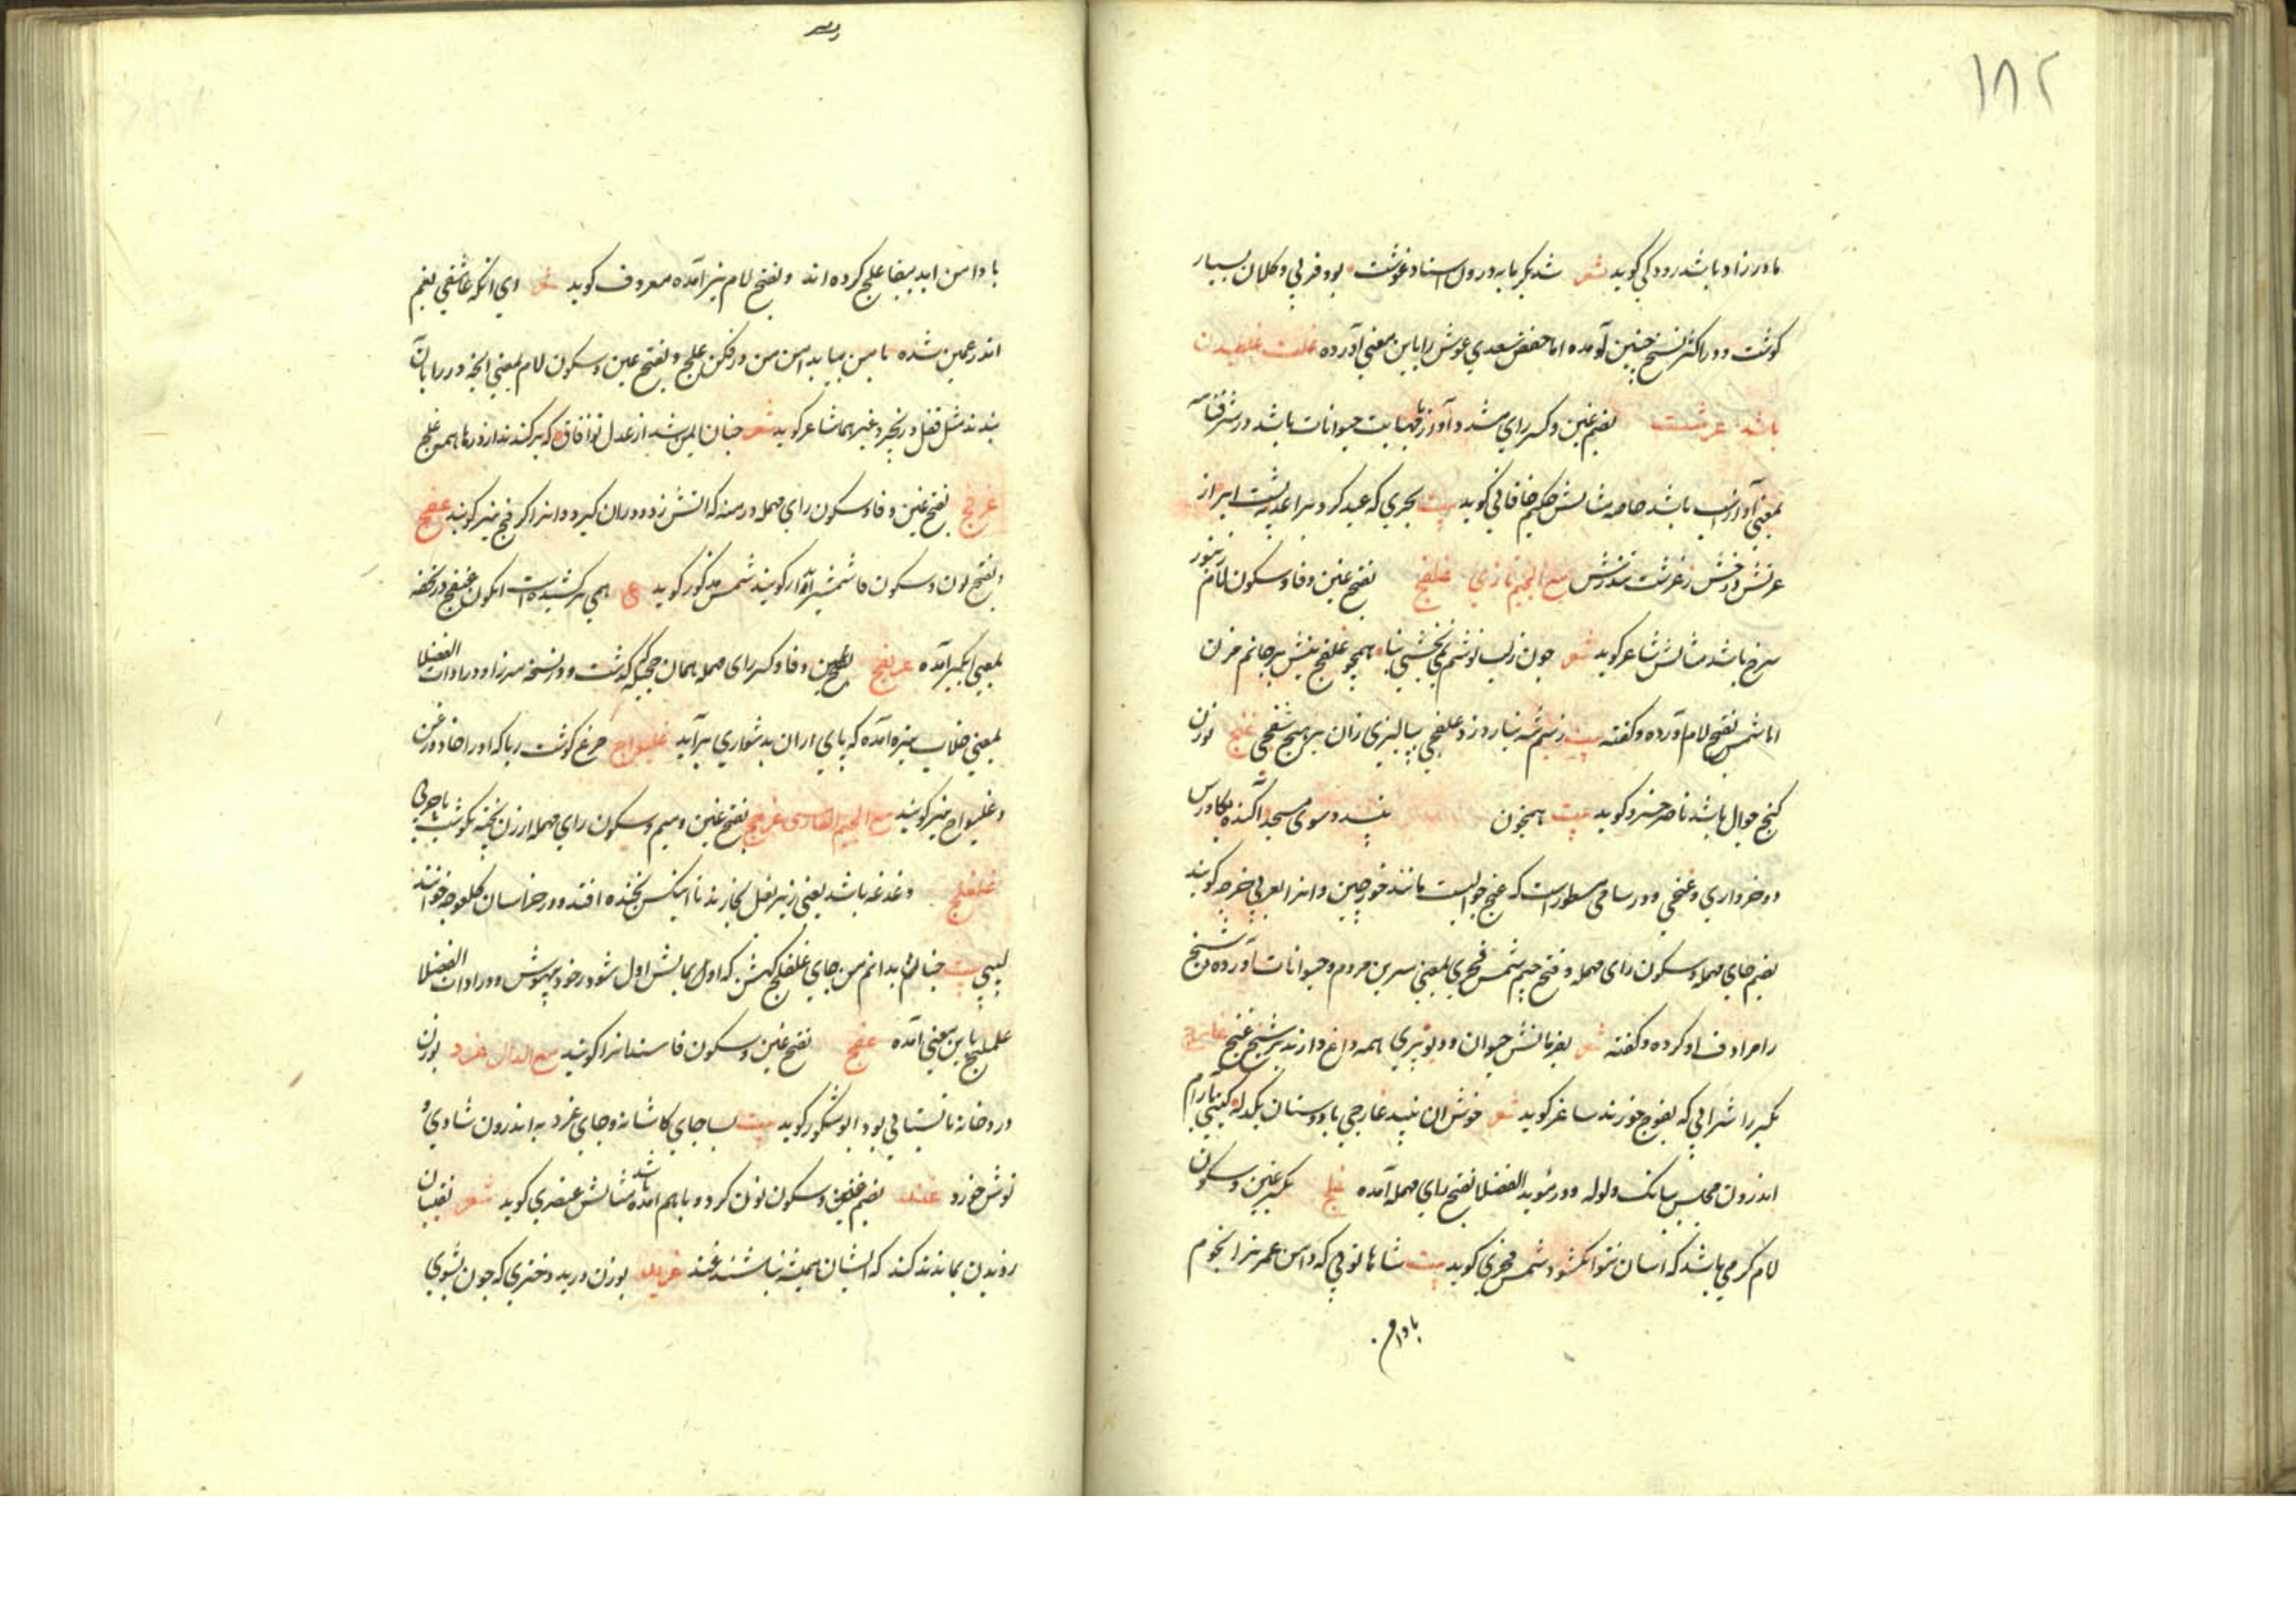 ۱۸۲
مادرزاد باشد رودکی کوید شعر شد بکرمابه درون استاد غوشت بود فربی و کلان بسیار
کوشت و در اکثر نسخ چنین آمده اما حفص سعدی غوش را باین معنی آورده غلت غلطیدن
باشد غرشت بضم غین و کسر رای مشدد آواز مهابت حیوانات باشد در شرفنامه
بمعنی آواز اسب باشد خاصه مثالش حکیم خاقانی کوید بیت بحری که عید کرد بر اعدا بپشت ابر از
غرش درخش ز غرشت تندرش مع الجیم تازی غلفج بفتح غین و فا و سکون لام زنبور
سرخ باشد مثالش شاعر کوید شعر چون زلب نوشم نمی بخشی بیا همچو غلفج نیش بر جانم مزن
اما شمس بفتح لام آورده و کفته بیت غنج بوزن
کنج جوال باشد ناصر خسرو کوید بیت همچون بنید و سوی مسجد آکنده بکاورس
دو خرواری و غنجی و در سامی مسطور است که غنج جوالیست مانند خورجین و انرا بعربی خرجه کویند
بضم خای مهمله و سکون رای مهمله و فتح جیم شمس فخری بمعنی سرین مردم و حیوانات آورده شنج
را مرادف او کرده و کفته شعر بفرمانش حیوان و دیو و پری همه داغ دارند بر شنج غنج غارج
بکسر را شرابی که بفوج خورند شاعر کوید شعر خوش ان نبید غارجی با دوستان یکدله کیتی بارام
اندرون مجلس ببانک ولوله و در موید الفضلا بفتح رای مهمله آمده غلج بکسر غین و سکون
لام کرهی باشد که اسان نتوانکشود شمس فخری کوید بیت شاها توئی که دامن عمر ترا نجوم
بادامن
بادامن ابد ببقا غلج کرده اند و بفتح لام نیز آمده معروف کوید شعر ای آنکه عاشقی بغم
اندر غمین شده بامن بیا بدامن من در فکن غلج و بفتح غین و سکون لام بمعنی انچه در را بان
بندند مثل قفل و زنجیر و غیرهما شاعر کوید شعر چنان ایمن شد از عدل تو افاق که بر کندند از درها همه غلج
غرفج بفتح غین و فا و سکون رای مهمله درمنه که اتش زود دران کیرد و انرا کرفج نیز کویند غنفج
و بفتح نون و سکون فا شمشیر ابدار کویند شمس مذکور کوید ع همی برکشیدست اکنون غنفج در نسخه
بمعنی ابکیر آمده غریفج بفتح غین و فا و کسر رای مهمله همان که کذشت و در نسخه میرزا و در ادات الفضلا
بمعنی خلاب تیره آمده که پای ازان بدشواری برآید غلیواج مرغ کوشت ربا که اورا خاد و زغن
و غلیواج نیز کویند مع الجیم الفارسی غرمج بفتح غین و میم و سکون رای مهمله ارزن پخته بکوشت یا چربی
غلغلج دغدغه باشد یعنی زیر بغل بخارند تا انکس بخنده افتد و در خراسان کلغوچه خوانند
لبیبی بیت چنان بدانم من جای غلغلجکهش که اول بمالش اول شود ز خود بیهوش و در ادات الفضلا
غلملیج باین معنی آمده غفج بفتح غین و سکون فا سندانرا کویند مع الدال غرد بوزن
درد خانه تابستانی بود ابوشکور کوید بیت بسا جای کاشانه و جای غرد به اندرون شادی و
نوش خورد غند بضم غین و سکون نون کرد و باهم امده باشد مثالش عنصری کوید شعر نقیبان
روندن بماندند کند که ایشان همیشه نباشند غند غرید بوزن درید دختری که چون بشوی